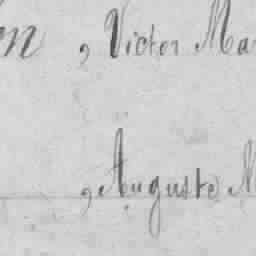 , Victor Ma
, Auguste M